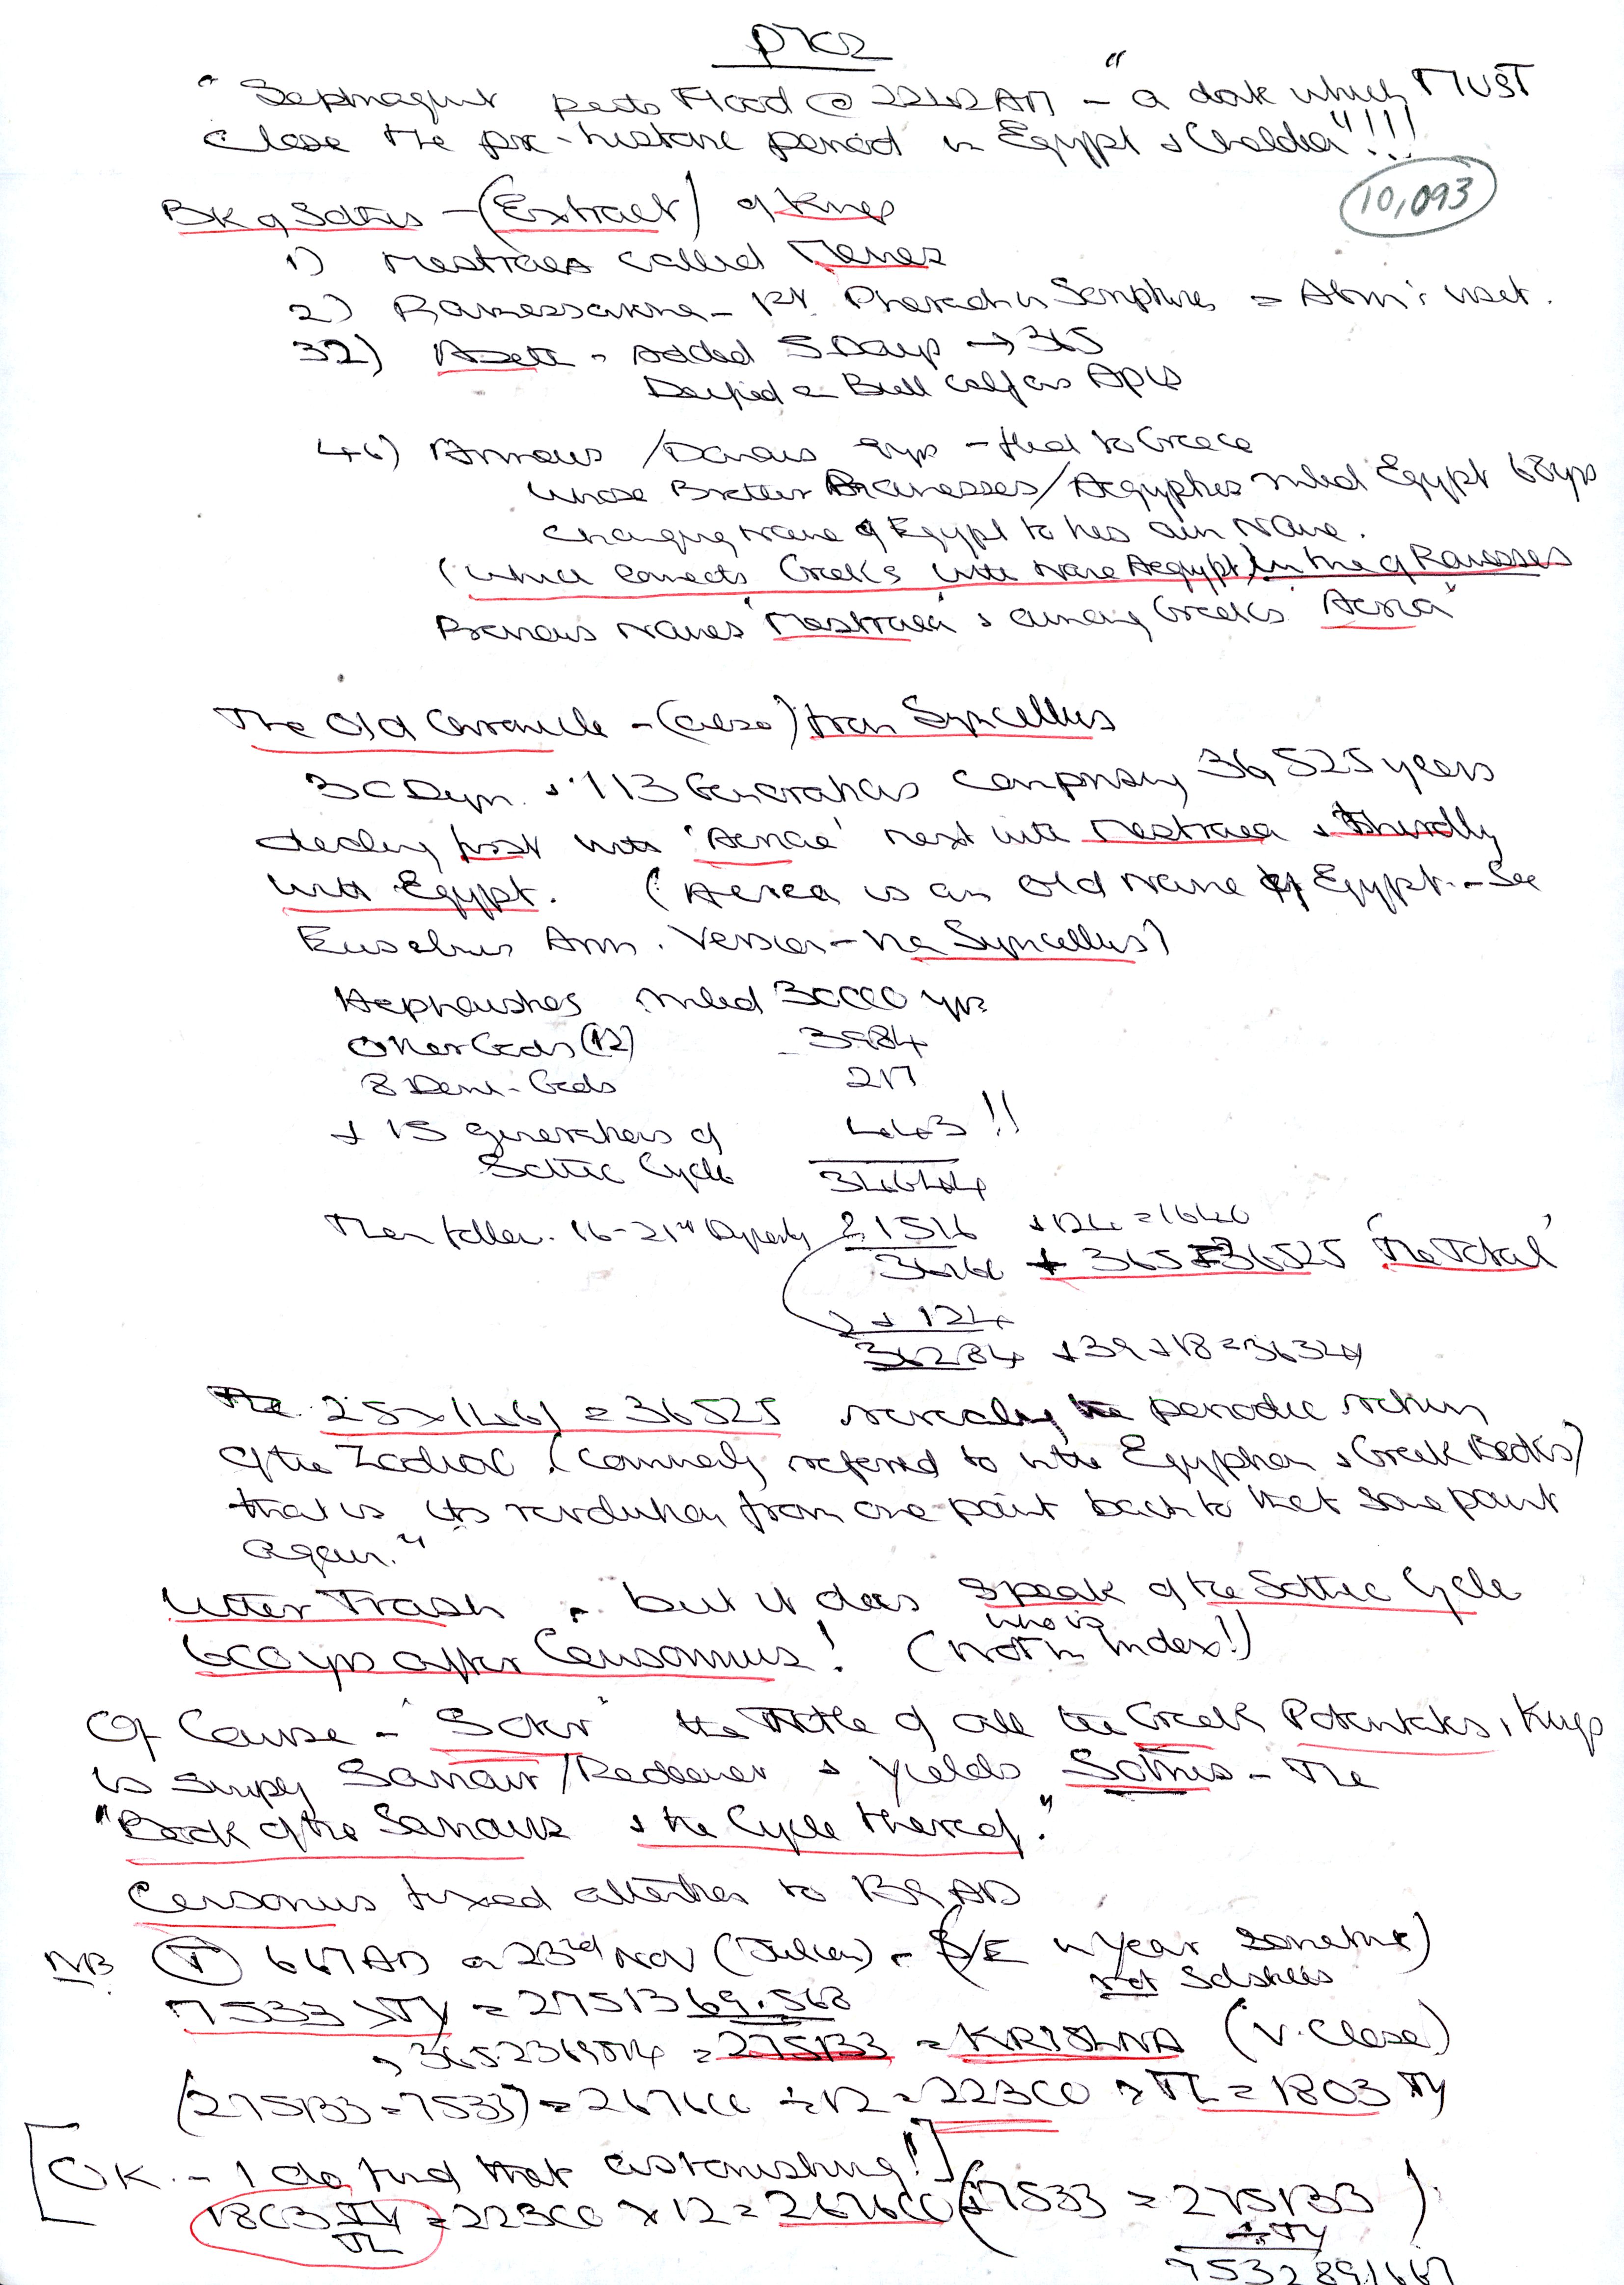 "Septuagint puts Flood @ 2242 AM" - a date which MUST
close the pre-historic period in Egypt & Chaldea"!!!
10,093
Bk of Sothis - (Extract) of Kings
1) Mestraea called Menes
2) Ramessamene - 1st Pharaoh in Scriptures = Abm's visit.
32) Aseth - Added 5 Days → 365
Deified a Bull calf as Apis
46) Armaeus / Danaus 9yrs - fled to Greece
whose Brother Ramesses/Aegyptus ruled Egypt 68yrs
changing name of Egypt to his own name.
(which connects Greeks with name Aegypt) in time of Ramesses
Previous names 'Mestraea' & among Greeks 'Aeria'
The Old Chronicle - (also) from Syncellus
30 Dyn. & 113 Generations comprising 36,525 years
dealing first with 'Aeriae' next with Mestraea & thirdly
with Egypt. (Aeria is an old name of Egypt - See
Eusebius Arm. Version - via Syncellus)
Hephaistos ruled 30000 yrs
Other Gods (12) 3984
8 Demi-Gods 217
+ 15 generations of 443 !!
Sothic Cycle 34644
Then follow. 16-21st Dynasty 1516 + 124 = 1640
+ 365 = 36525 'The Total'
+ 124
36284 + 39 + 18 =
The 25 x 1461 = 36525 revealing the periodic return
of the Zodiac (commonly referred to in the Egyptian & Greek Books)
that is its revolution from one point back to that same point
again."
Utter Trash - but it does speak of the Sothic Cycle
600 yrs after Censorinus! (who is Not in Index!)
Of Course - "Soter" the Title of all the Greek Potentates, Kings
is simply Saviour/Redeemer & yields Sothis - The
"Book of the Saviours & the Cycle thereof."
Censorinus fixed attention to 139 AD
NB (T) 667 AD on 23rd Nov (Julian) - (S/E in year sometime)
not Solstices
7533 STY = 2751369.568
÷ 365.2369814 = 275133 = KRISHNA (V. Close)
(275133 - 7533) = 267600 ÷ 12 = 22300 = 1803 TY
[OK - I do find that astonishing!]
1803 TY = 22300 x 12 = 267600 (+ 7533 = 275133)